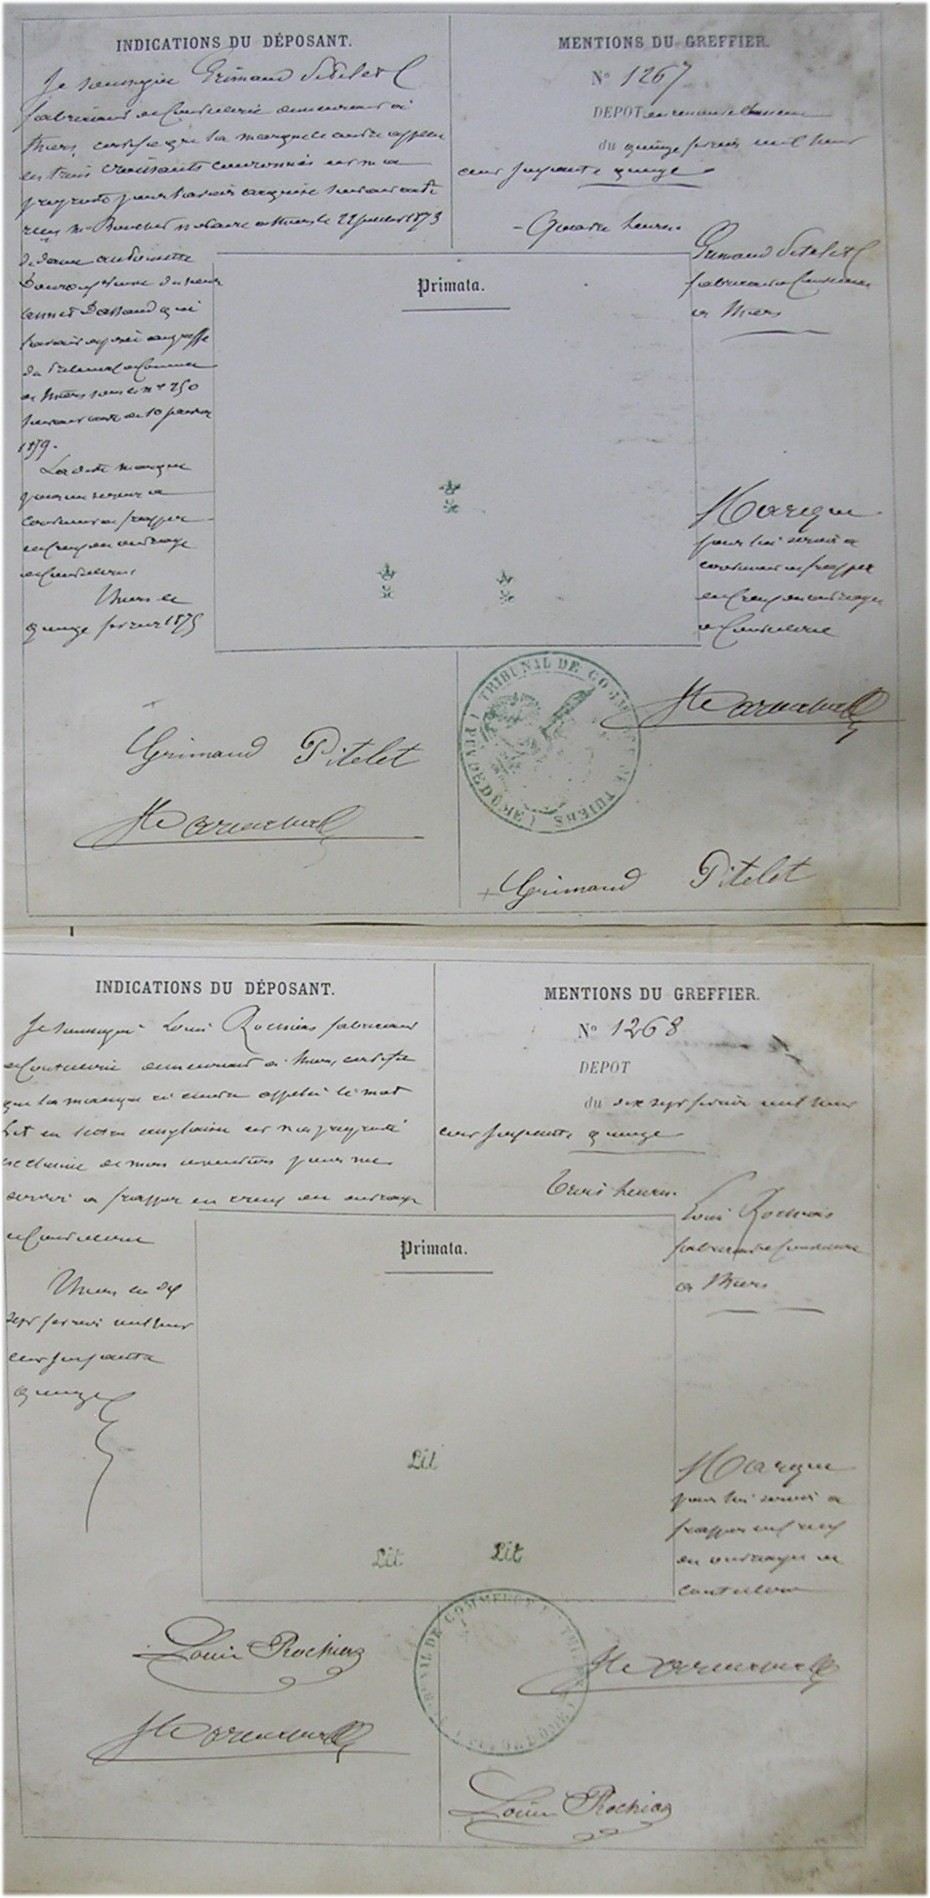 INDICATIONS DU DÉPOSANT.
Je soussigné Grimaud Pitelet
fabricant de Coutellerie demeurant à
Thiers, certifie que la marque ci contre appelée
les trois Croissants couronnés est ma
propriété pour l'avoir acquise suivant acte
reçu Me notaire à Thiers le 22 juillet 1873
de dame
qui
l'avait déposée au greffe
du Tribunal de Commerce
de Thiers sous le n° 250
suivant acte du 10
La dite marque
pour me servir à
continuer de frapper
en creux en ouvrage
de Coutellerie,
Thiers le
quinze février 1875
Grimaud Pitelet
MENTIONS DU GREFFIER.
N° 1267
DEPOT en renouvellement
du quinze février mil huit
cent soixante quinze
Quatre heures.
Grimaud Pitelet
fabricant de Coutellerie
à Thiers
Primata.
Marque
pour lui servir à
continuer de frapper
en creux en ouvrages
de Coutellerie
TRIBUNAL DE COMMERCE DE THIERS (PUY-DE-DOME)
Grimaud Pitelet
INDICATIONS DU DÉPOSANT.
Je soussigné Louis Rochias fabricant
de Coutellerie demeurant à Thiers, certifie
que la marque ci contre appelée le mot
Lit en lettre anglaise est ma propriété
de mon invention pour me
servir à frapper en creux en ouvrage
de Coutellerie
Thiers le dix
sept février mil huit
cent soixante
quinze
Louis Rochias
MENTIONS DU GREFFIER.
N° 1268
DEPOT
du dix sept février mil huit
cent soixante quinze
Trois heures.
Louis Rochias
fabricant de Coutellerie
à Thiers
Primata.
Lit
Lit Lit
Marque
pour lui servir à
frapper en creux
en ouvrages de
coutellerie
TRIBUNAL DE COMMERCE DE THIERS (PUY-DE-DOME)
Louis Rochias